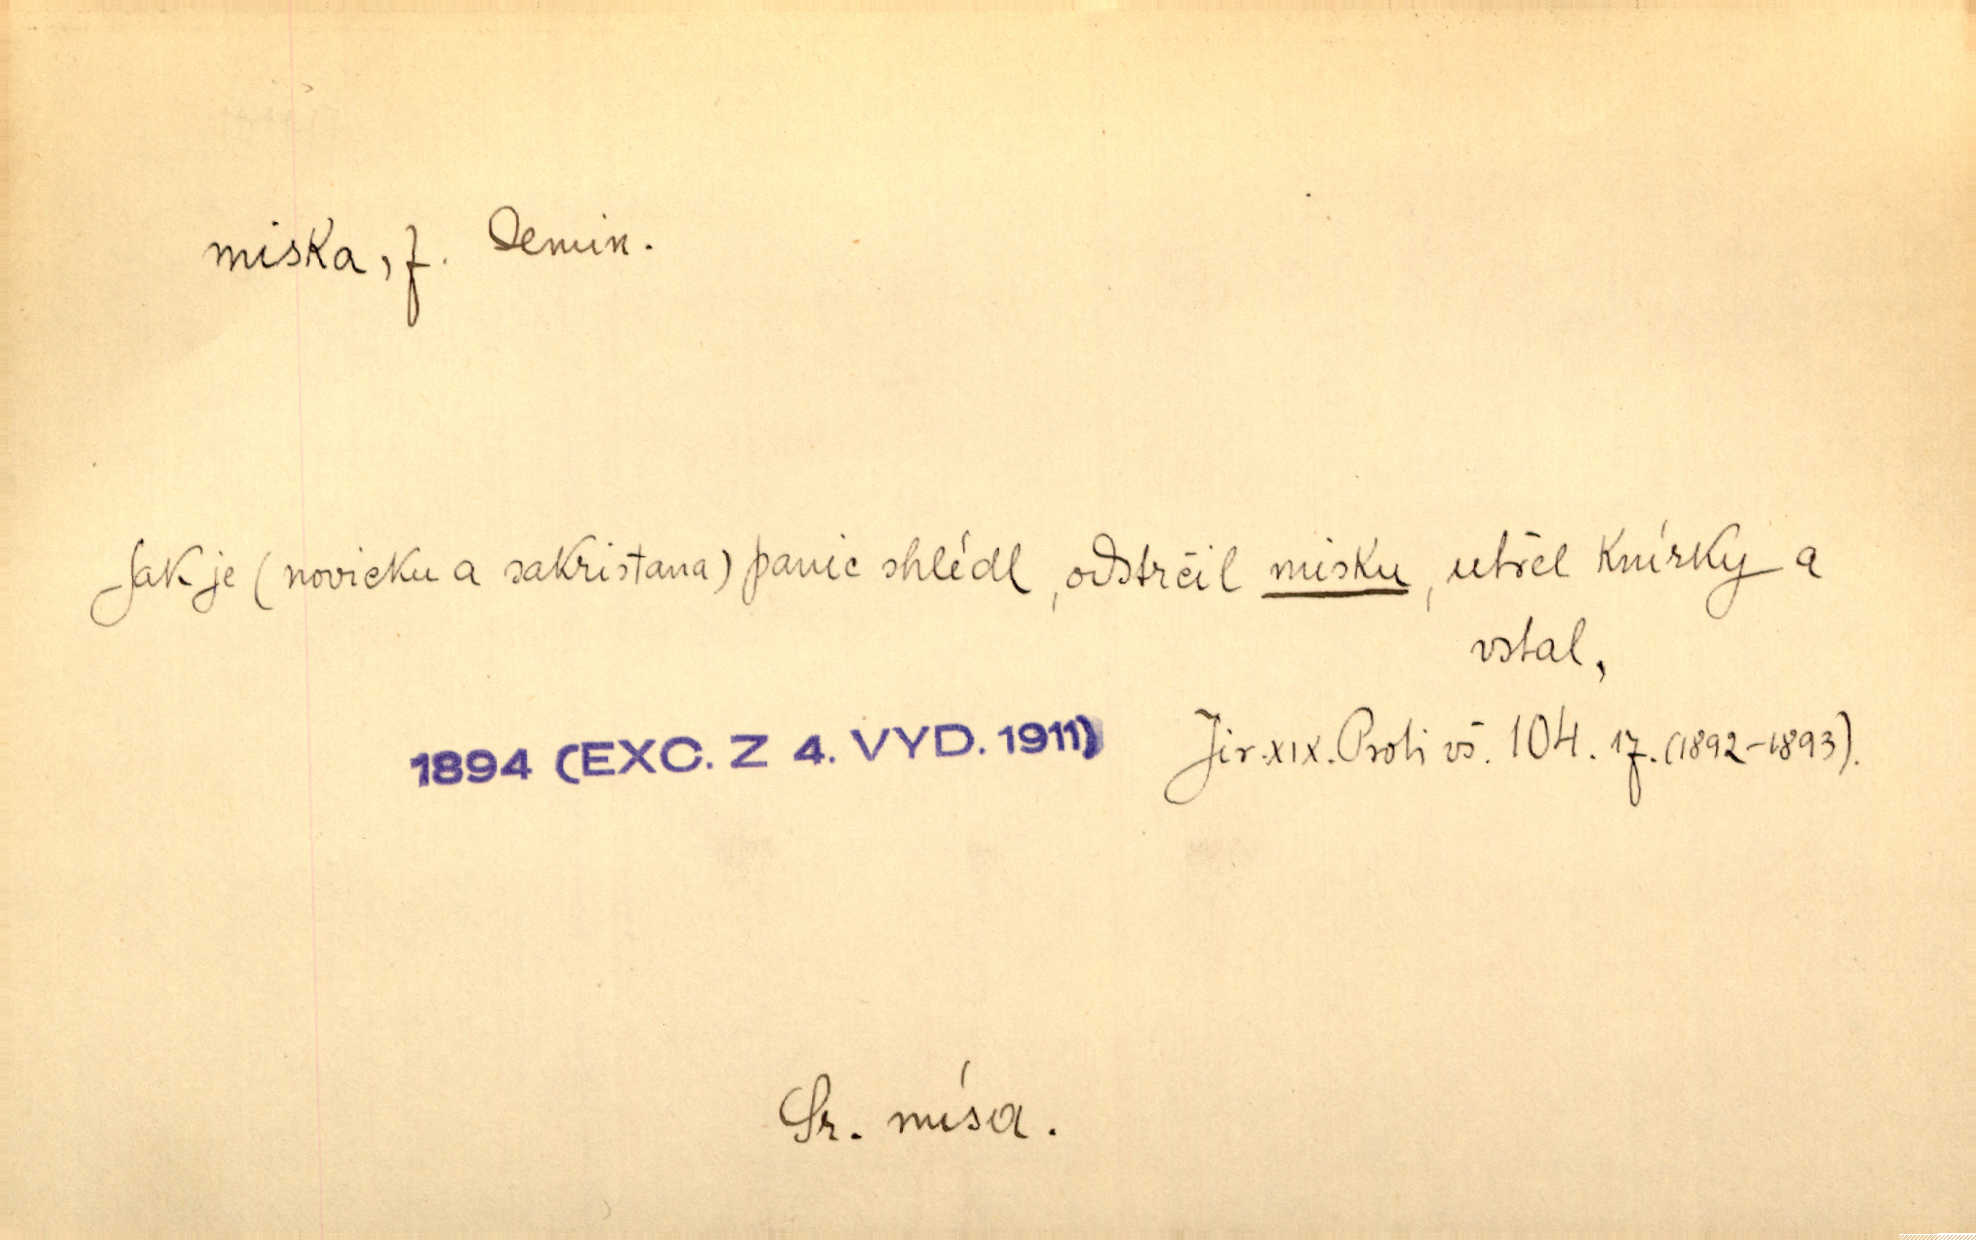 miska, f. Demin.
Jak je (novicku a sakristana) panic shlédl, odstrčil misku, utřel knírky a
vstal,
1894 (EXC. Z 4. VYD. 1911) Jir. XIX. Proti vš. 104. 17. (1892-1893).
Sr. mísa.